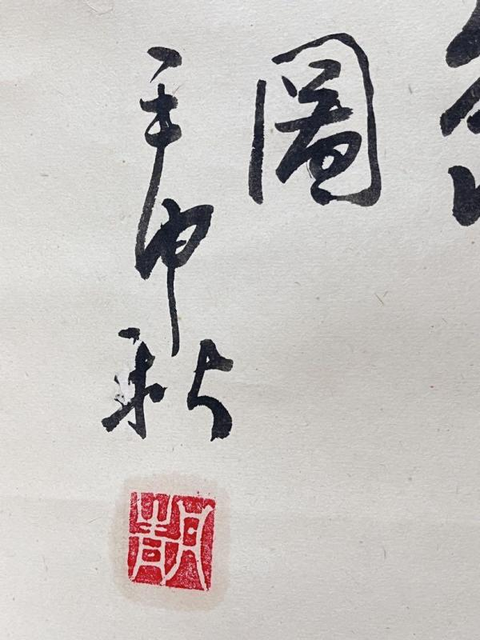 圖
壬申秋